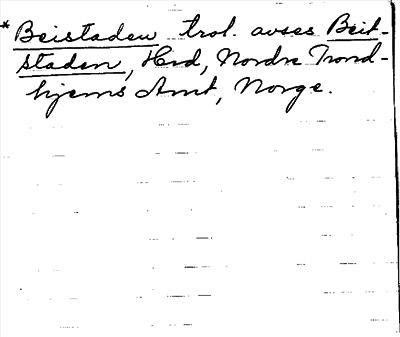 * Beistaden trol. avses Beit-
staden, Hrd, Nordre Trond-
hjems Amt, Norge.